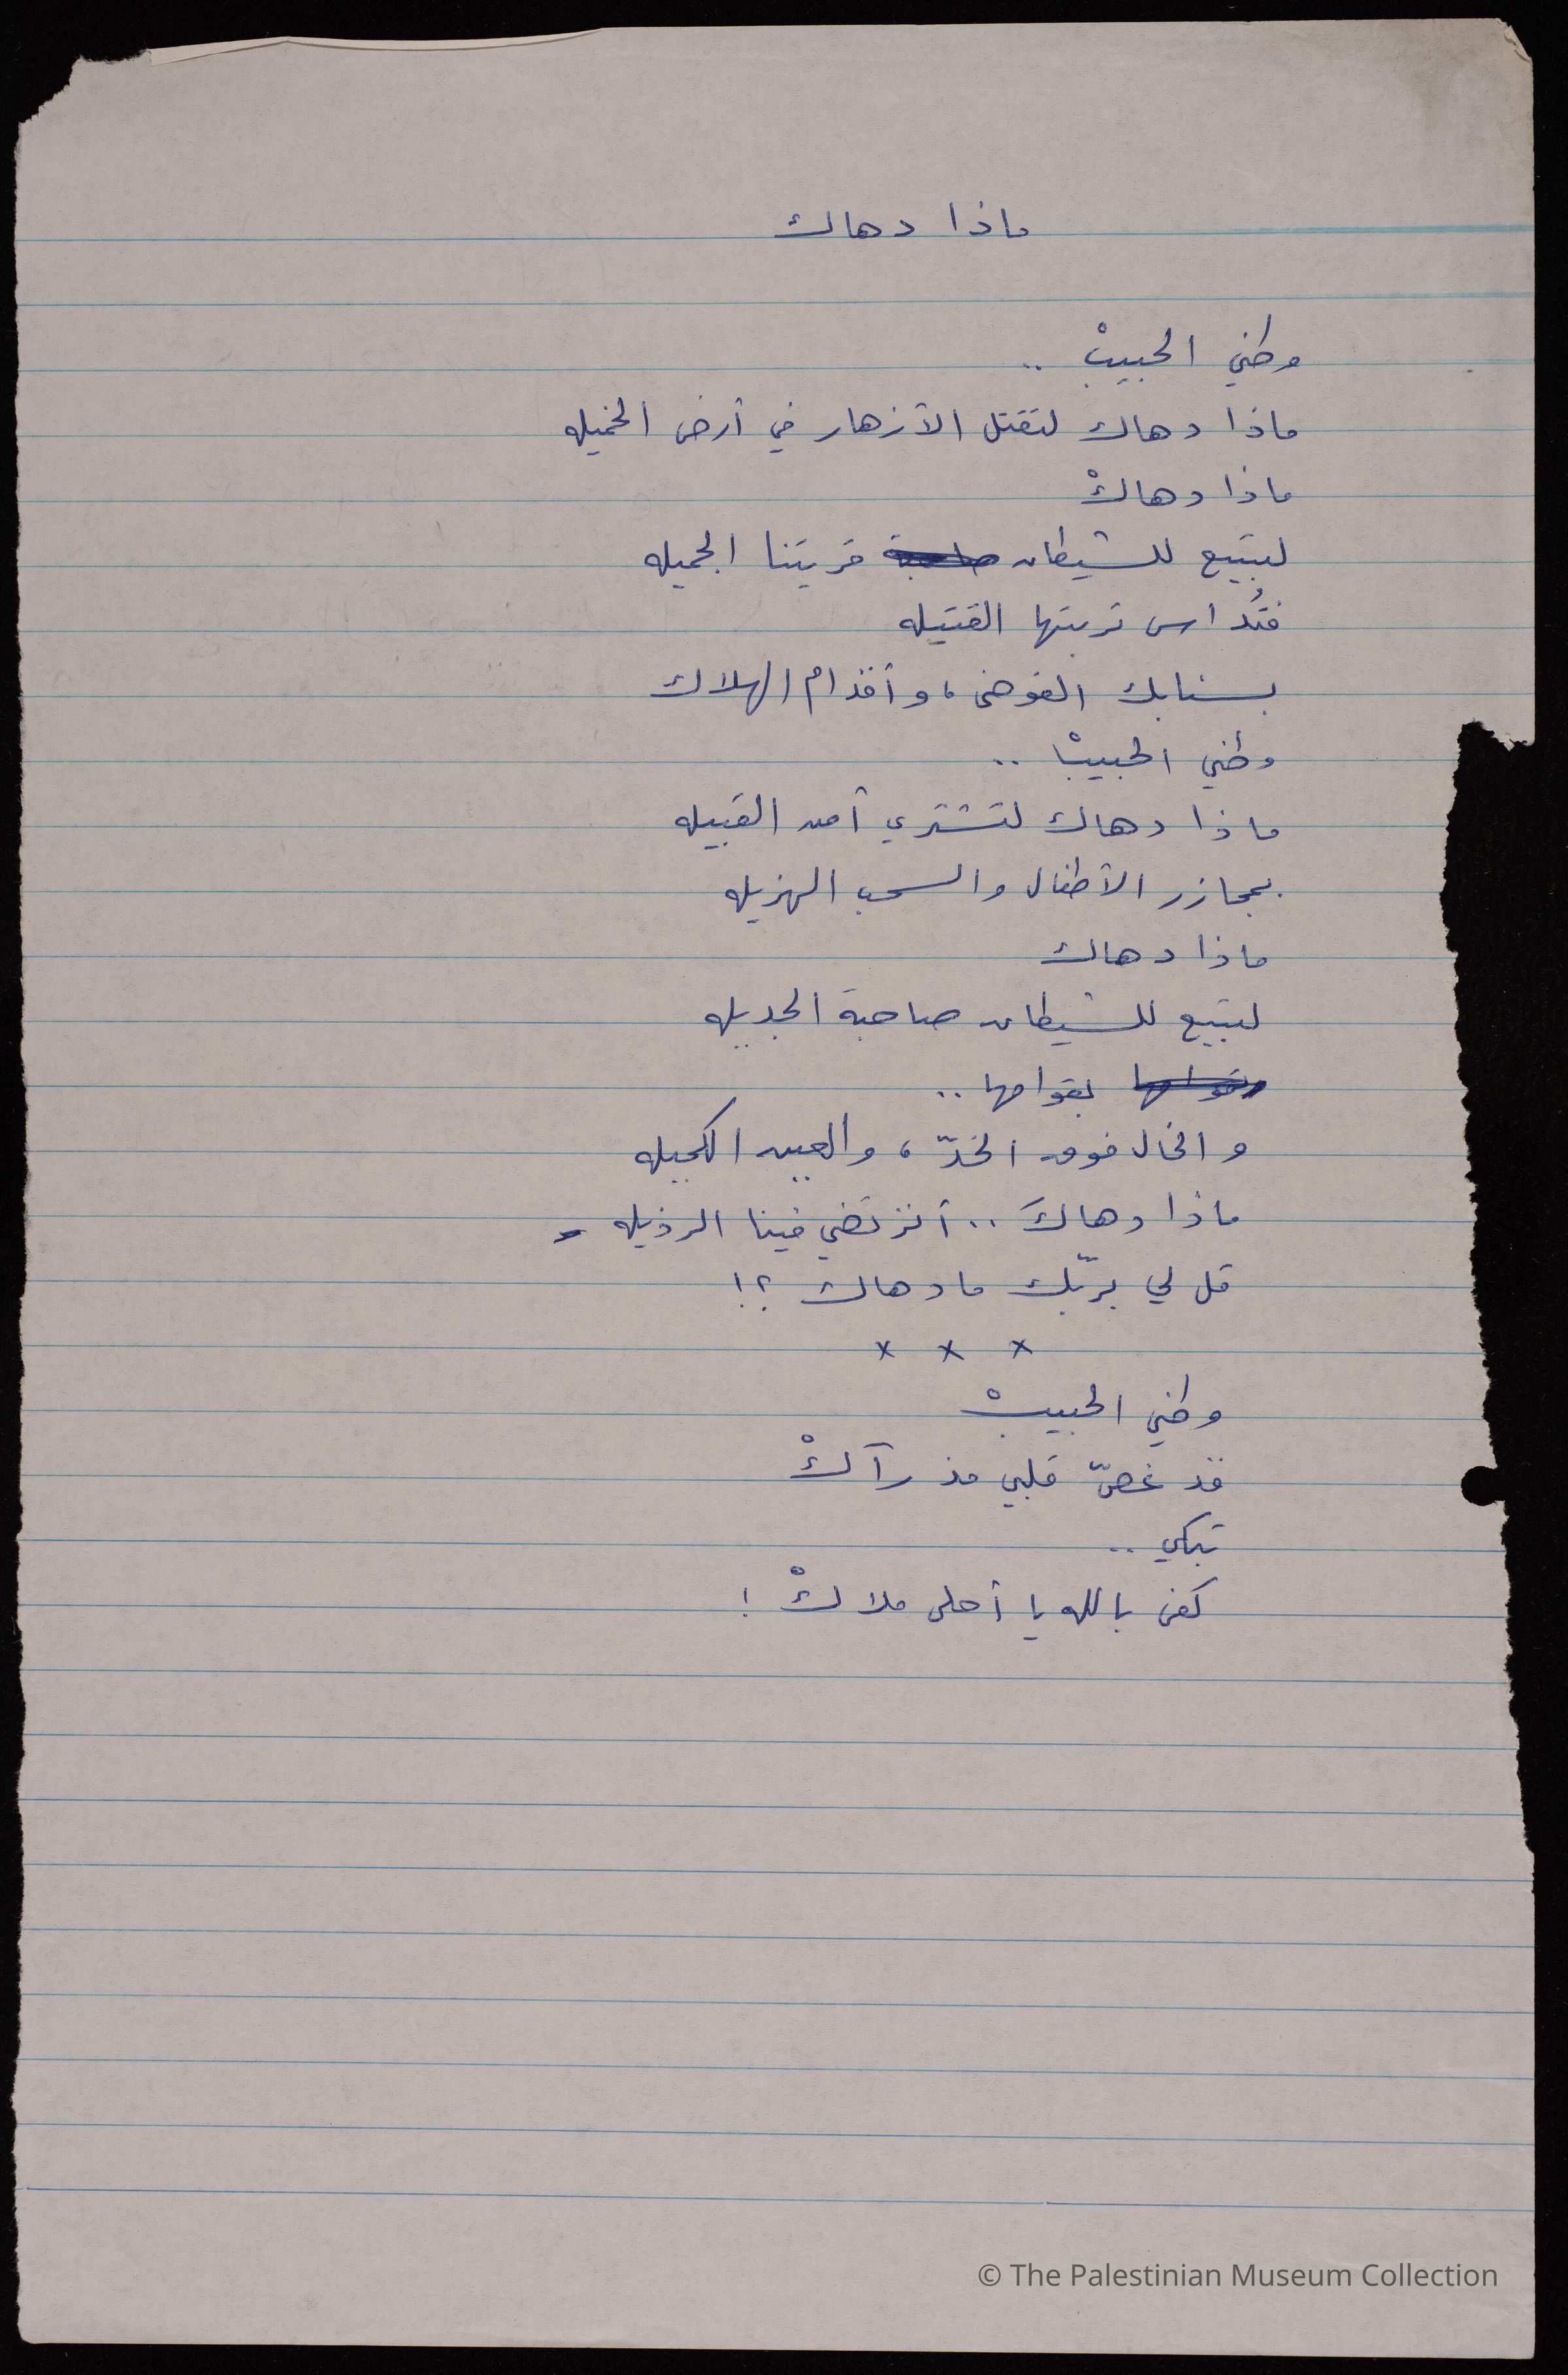 ماذا دهاك
وطني الحبيبْ ..
ماذا دهاك لتقتل الأزهار في أرض الخميله
ماذا دهاكْ
لتبيع للشيطان قريتنا الجميله
فتُداس تربتها القتيله
بسنابك الفوضى، وأقدام الهلاك
وطني الحبيبْ ..
ماذا دهاك لتشتري أمن القبيله
بمجازر الأطفال والسحب الهزيله
ماذا دهاك
لتبيع للشيطان صاحبة الجديله
بقوامها ..
والخال فوق الخدّ، والعين الكحيله
ماذا دهاكَ .. أترتضي فينا الرذيله
قل لي بربّك ما دهاك ؟!
× × ×
وطني الحبيبْ
قد غصّ قلبي مذ رآكْ
تبكي ..
كفى بالله يا أحلى ملاكْ !
© The Palestinian Museum Collection